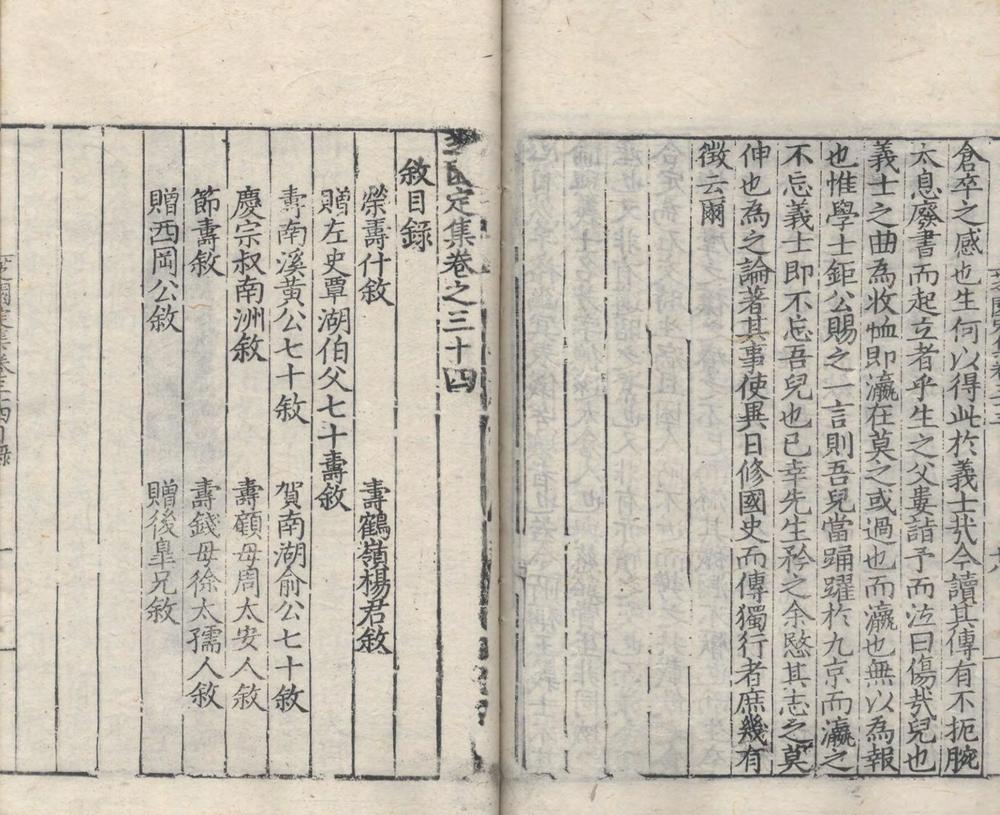 倉卒之感也生何以得此於義士㦲今讀其傳有不扼腕
太息廢書而起立者乎生之父婁詣予而泣曰傷㦲兒也
義士之曲為收恤即瀛在莫之或過也而瀛也無以為報
也惟學士鉅公賜之一言則吾兒當踊躍於九京而瀛之
不忘義士即不忘吾兒也已幸先生矜之余愍其志之莫
伸也為之論著其事使異日修國史而傳獨行者庶幾有
徵云爾
定集卷之三十四
敘目錄
榮壽什敘 壽鶴嶺楊君敘
贈左史覃湖伯父七十壽敘
壽南溪黃公七十敘 賀南湖俞公七十敘
慶宗叔南洲敘 壽顧母周太安人敘
節壽敘 壽錢母徐太孺人敘
贈西岡公敘 贈後臯兄敘